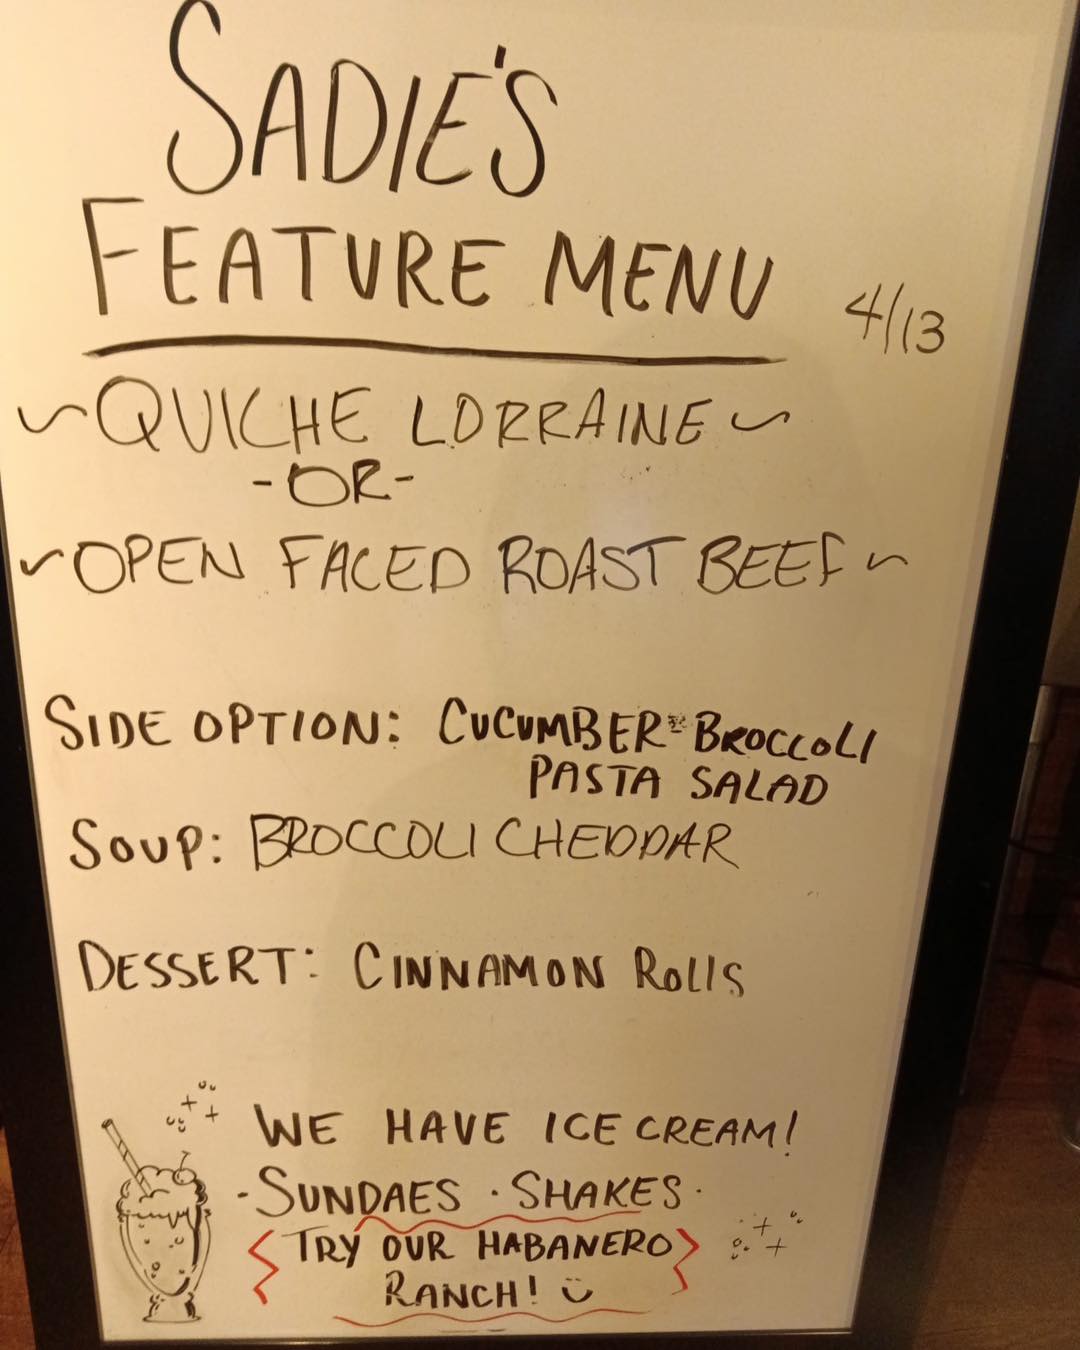 SADIE'S
FEATURE MENU
4/13
~QUICHE LORRAINE~
-OR-
~OPEN FACED ROAST BEEF~
SIDE OPTION: CUCUMBER BROCCOLI
PASTA SALAD
SOUP: BROCCOLI CHEDDAR
DESSERT: CINNAMON ROLLS
WE HAVE ICE CREAM!
·SUNDAES · SHAKES·
TRY OUR HABANERO
RANCH! Ü